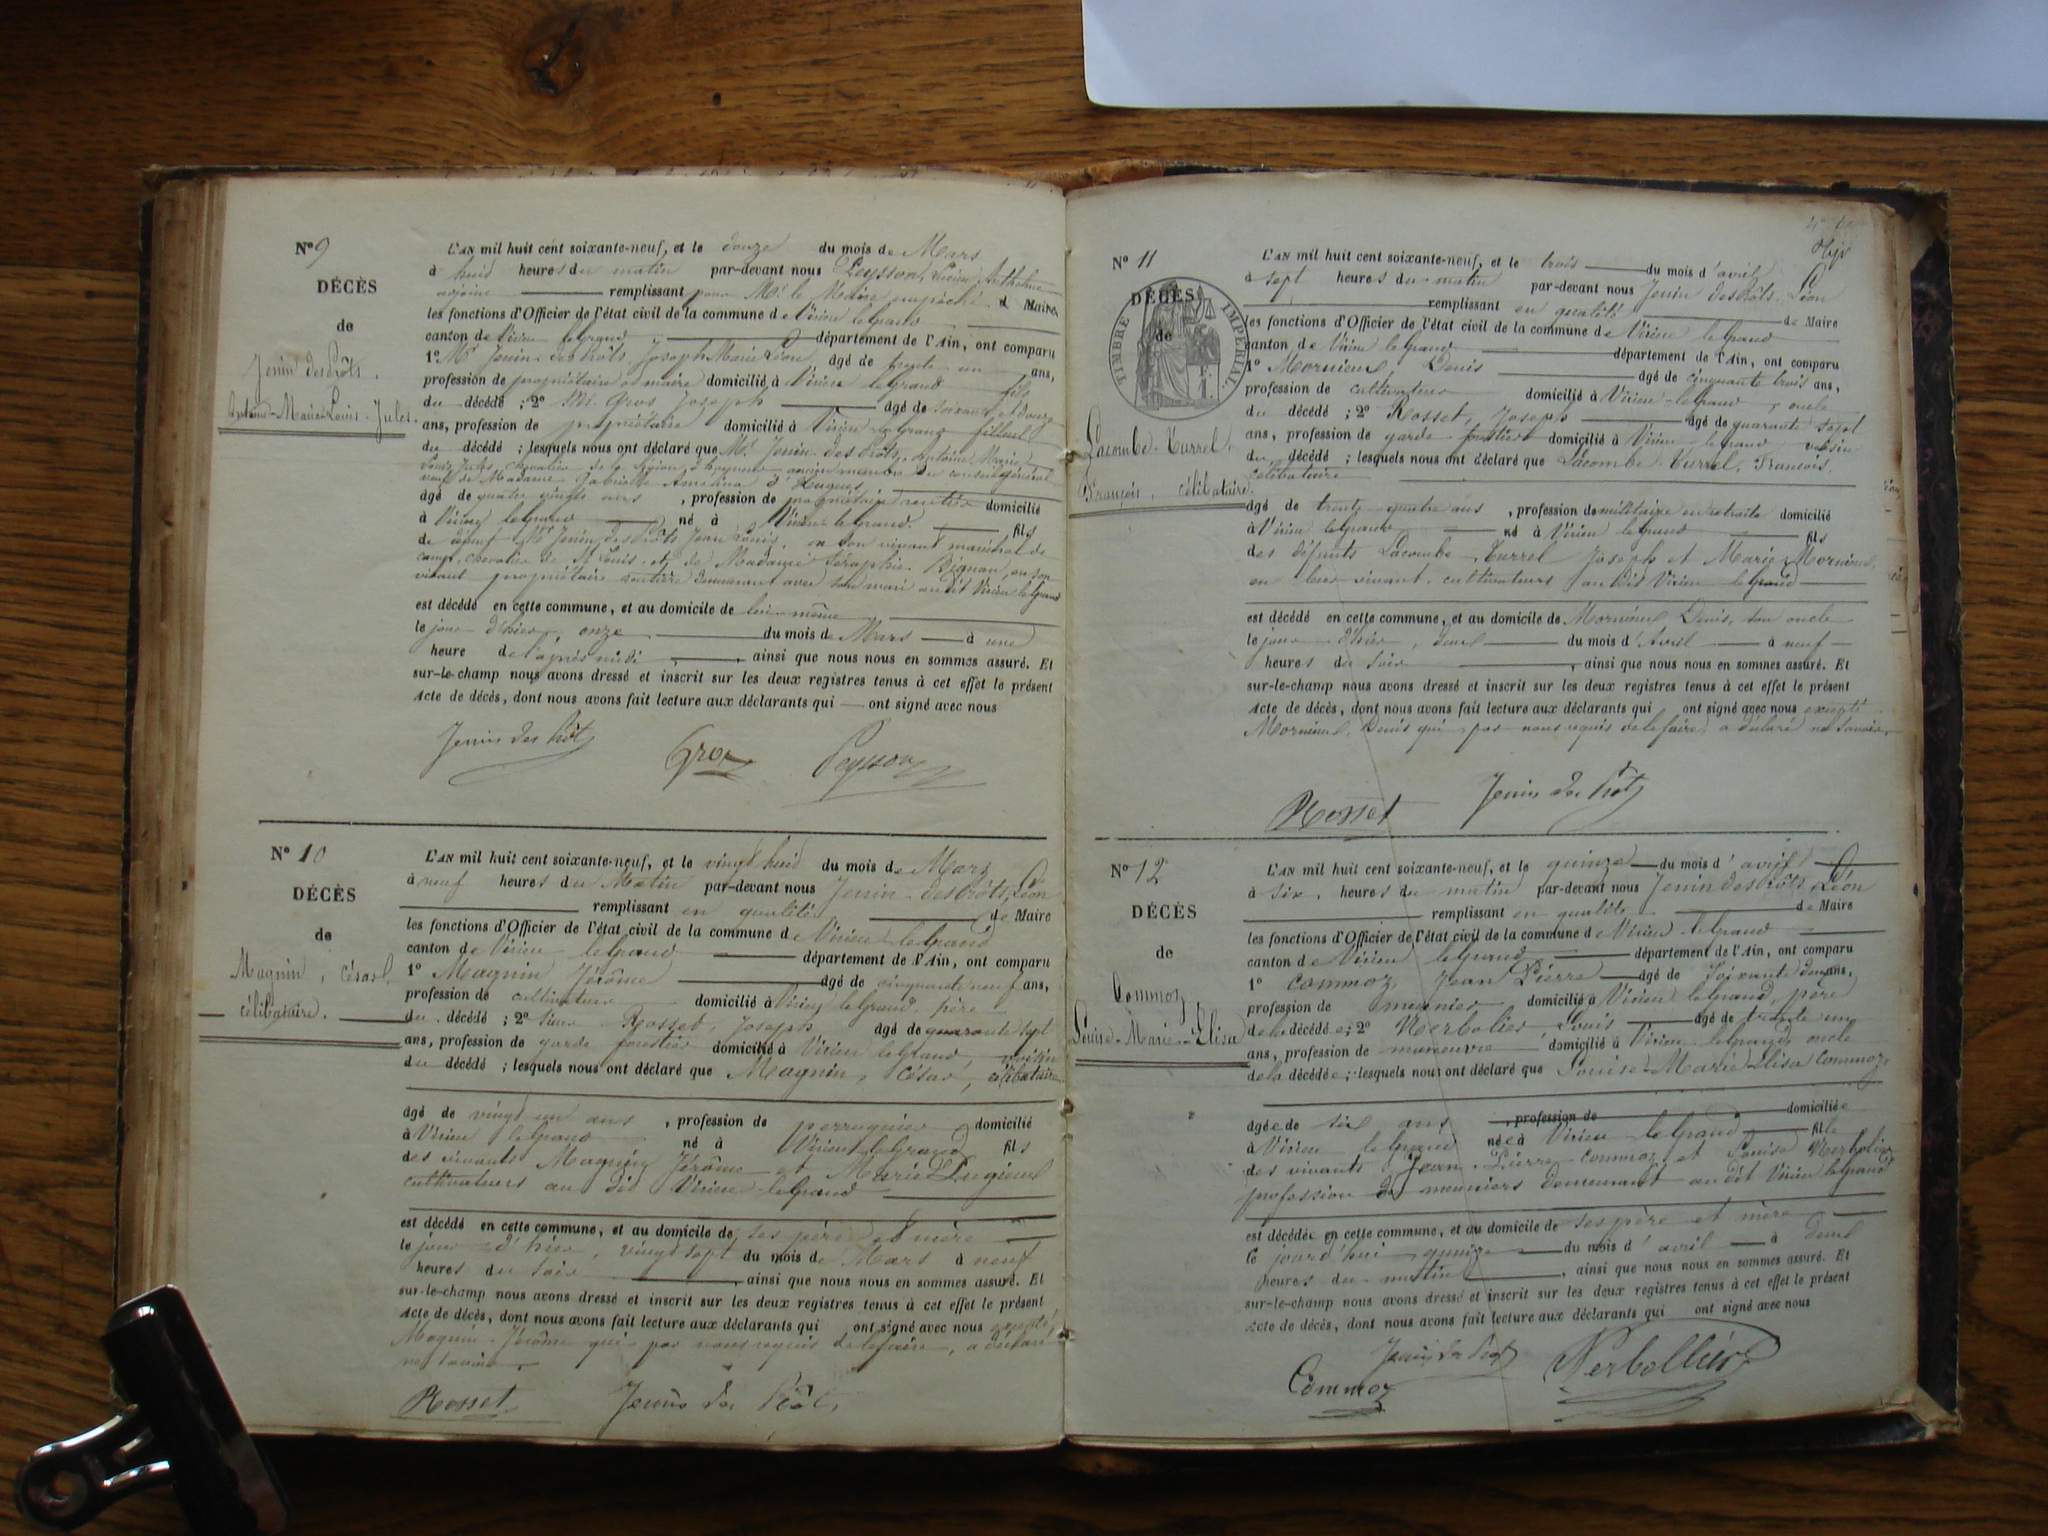 N° 9
DÉCÈS
de
Jenin desprôts,
Antoine-Marie-Louis-Jules.
L'AN mil huit cent soixante-neuf, et le douze du mois de Mars
à huit heures du matin par-devant nous Peysson,
adjoint remplissant pour Mr le Maire empêché d Maire
les fonctions d'Officier de l'état civil de la commune de Virieu le grand
canton de Virieu le grand département de l'Ain, ont comparu
1° Mr Jenin desprôts Joseph Marie Léon, âgé de trente un ans,
profession de propriétaire et maire domicilié à Virieu le grand fils
du décédé ; 2° Mr Gros Joseph âgé de soixante et douze
ans, profession de propriétaire domicilié à Virieu le grand filleul
du décédé ; lesquels nous ont déclaré que Mr Jenin desprôts, Antoine Marie
Louis Jules, chevalier de la légion d'honneur ancien membre du conseil général
veuf de Madame Gabrielle d'Hugues
âgé de quatre vingts ans, profession de propriétaire rentier domicilié
à Virieu le grand né à Virieu le grand fils
de défunt Mr Jenin desprôts Jean Louis, en son vivant maréchal de
camp, chevalier de St Louis et de Madame Séraphie en son
vivant propriétaire rentière demeurant avec son mari au dit Virieu le grand
est décédé en cette commune, et au domicile de lui-même
le jour d'hier, onze du mois de Mars à une
heure de l'après midi, ainsi que nous nous en sommes assuré. Et
sur-le-champ nous avons dressé et inscrit sur les deux registres tenus à cet effet le présent
acte de décès, dont nous avons fait lecture aux déclarants qui ont signé avec nous
Jenin des Prôts Gros Peysson
N° 10
DÉCÈS
de
Magnin, César,
célibataire.
L'AN mil huit cent soixante-neuf, et le vingt huit du mois de Mars
à neuf heures du Matin par-devant nous Jenin-desprôts, Léon
remplissant en qualité de Maire
les fonctions d'Officier de l'état civil de la commune de Virieu le grand
canton de Virieu-le grand département de l'Ain, ont comparu
1° Magnin Jérôme âgé de cinquante neuf ans,
profession de cultivateur domicilié à Virieu le grand, père
du décédé ; 2° sieur Rosset, Joseph, âgé de quarante sept
ans, profession de garde forestier domicilié à Virieu le grand, voisin
du décédé ; lesquels nous ont déclaré que Magnin, César, célibataire
âgé de vingt un ans, profession de perruquier domicilié
à Virieu le grand né à Virieu le Grand fils
des vivants Magnin Jérôme et Marie
cultivateurs au dit Virieu-le grand
est décédé en cette commune, et au domicile de ses père et mère
le jour d'hier, vingt sept du mois de Mars à neuf
heures du soir, ainsi que nous nous en sommes assuré. Et
sur-le-champ nous avons dressé et inscrit sur les deux registres tenus à cet effet le présent
acte de décès, dont nous avons fait lecture aux déclarants qui ont signé avec nous excepté
Magnin-Jérôme qui par nous requis de le faire, a déclaré
ne savoir.
Rosset Jenin des Prôts
N° 11
DÉCÈS
de
TIMBRE IMPÉRIAL
Lacombe-Turrel,
François, célibataire.
L'AN mil huit cent soixante-neuf, et le trois du mois d'avril
à sept heures du matin par-devant nous Jenin desprôts, Léon
remplissant en qualité de Maire
les fonctions d'Officier de l'état civil de la commune de Virieu le grand
canton de Virieu le grand département de l'Ain, ont comparu
1° Mornieux Denis âgé de cinquante trois ans,
profession de cultivateur domicilié à Virieu-le grand, oncle
du décédé ; 2° Rosset, Joseph âgé de quarante sept
ans, profession de garde forestier domicilié à Virieu le grand voisin
du décédé ; lesquels nous ont déclaré que Lacombe-Turrel, François,
célibataire
âgé de trente quatre ans, profession de militaire en retraite domicilié
à Virieu le grand né à Virieu le grand fils
des défunts Lacombe-Turrel Joseph et Marie Mornieux,
en leur vivant cultivateurs au dit Virieu le grand
est décédé en cette commune, et au domicile de Mornieux Denis, son oncle
le jour d'hier, deux du mois d'Avril à neuf
heures du soir, ainsi que nous nous en sommes assuré. Et
sur-le-champ nous avons dressé et inscrit sur les deux registres tenus à cet effet le présent
acte de décès, dont nous avons fait lecture aux déclarants qui ont signé avec nous excepté
Mornieux Denis qui par nous requis de le faire, a déclaré ne savoir.
Rosset Jenin des Prôts
N° 12
DÉCÈS
de
Commoz
Louise-Marie-Elisa
L'AN mil huit cent soixante-neuf, et le quinze du mois d'avril
à six heures du matin par-devant nous Jenin desprôts, Léon
remplissant en qualité de Maire
les fonctions d'Officier de l'état civil de la commune de Virieu-le grand
canton de Virieu le grand département de l'Ain, ont comparu
1° Commoz, Jean Pierre âgé de soixante deux ans,
profession de meunier domicilié à Virieu le grand, père
de la décédée ; 2° Nerbolier, Louis âgé de trente un
ans, profession de manœuvre domicilié à Virieu-le grand, oncle
de la décédée ; lesquels nous ont déclaré que Louise-Marie-Elisa Commoz,
âgée de six ans, profession de domiciliée
à Virieu le grand née à Virieu-le grand fille
des vivants Jean-Pierre Commoz et Louise Nerbolier
profession de meuniers demeurant au dit Virieu le grand
est décédée en cette commune, et au domicile de ses père et mère
le jourd'hui quinze du mois d'avril à deux
heures du matin, ainsi que nous nous en sommes assuré. Et
sur-le-champ nous avons dressé et inscrit sur les deux registres tenus à cet effet le présent
acte de décès, dont nous avons fait lecture aux déclarants qui ont signé avec nous
Commoz Jenin des Prôts Nerbollier